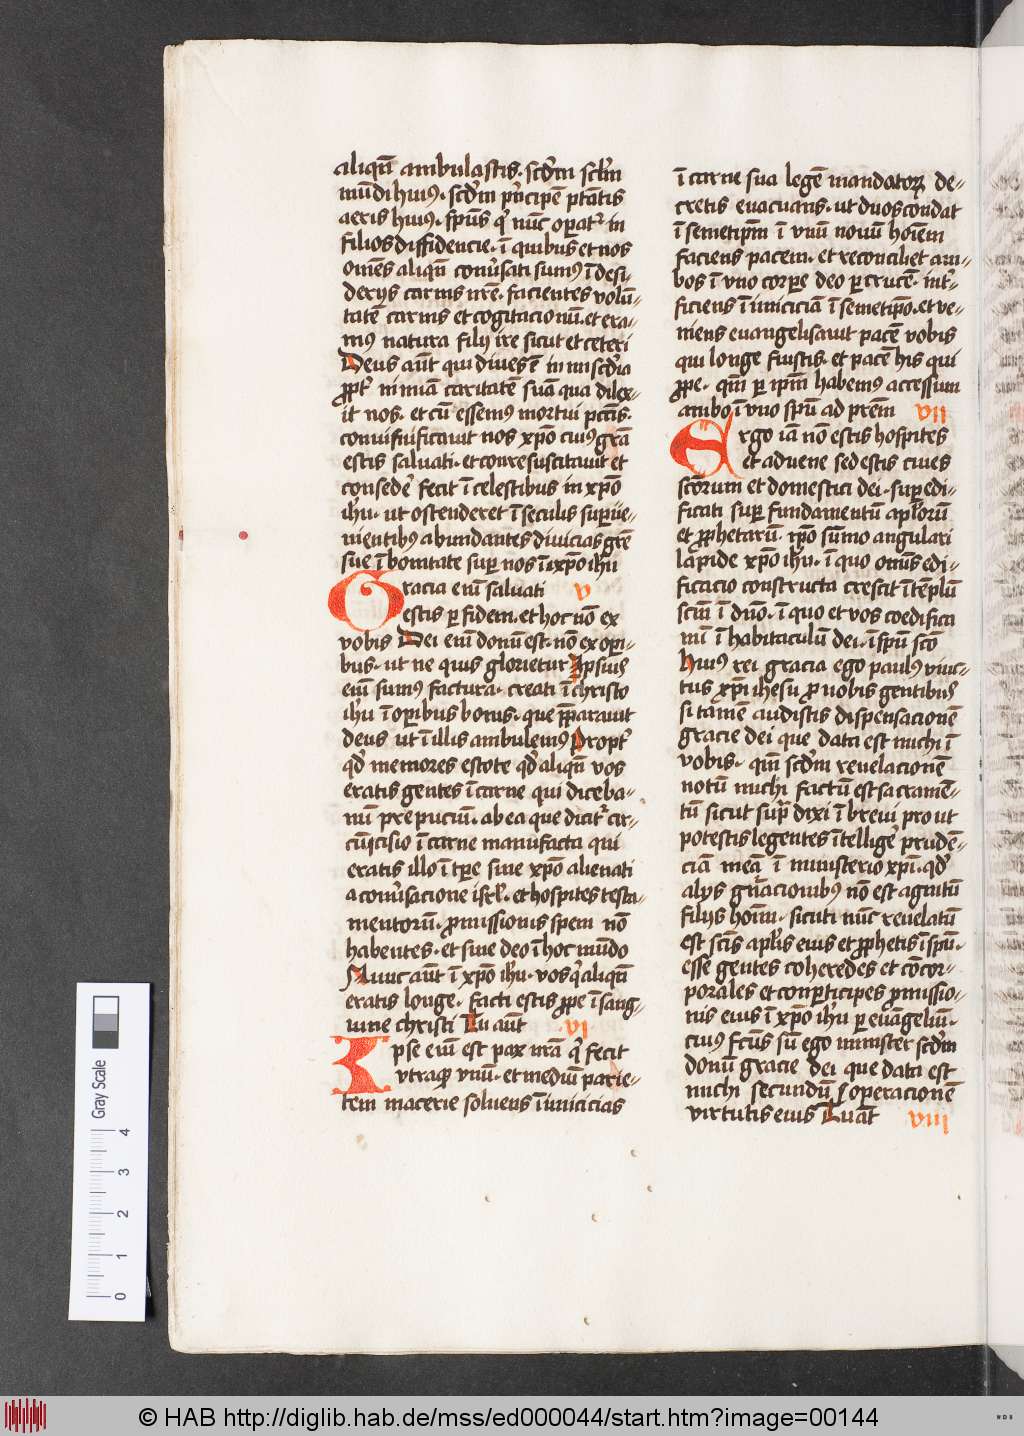 aliqn̄ ambulastis. scd̄m sclm̄
mūdi huiꝯ. scd̄m pⁱncipē ptātis
aeris huiꝯ. spūs qⁱ nūc oꝑatᷣ in
filios diffidencie. ī quibus et nos
om̄es aliqn̄ conūsati sumꝯ ī desi-
derijs carnis nrē. facientes volū-
tatē carnis et cogitacionū. et era-
mꝯ natura filij ire sicut et ceteri
Deus aūt qui diues ē in miscd̄ia
ꝓptᷣ nimiā caritatē suā qua dilex-
it nos. et cū essemꝯ mortui pctīs.
conuiuificauit nos xp̄o cuiꝯ grā
estis saluati. et conresuscitauit et
consedē fecit ī celestibus in xp̄o
ih̄u. ut ostenderet ī seculis suꝑūe-
nientibꝯ abundantes diuicias grē
sue ī bonitate suꝑ nos ī xp̄o ih̄u
Gracia enī saluati v
estis ꝑ fidem. et hoc nō ex
vobis Dei enī donū est. nō ex oꝑi-
bus. ut ne quis glorietur Ipsius
enī sumus factura. creati ī christo
ih̄u ī oꝑibus bonis. que p̄ꝑarauit
deus ut ī illis ambulemꝯ Proptᷣ
qd̄ memores estote qd̄ aliqn̄ vos
eratis gentes ī carne qui diceba-
mī prepuciū. ab ea que dicitᷣ cir-
cūcisio ī carne manufacta qui
eratis illo ī tꝑe sine xp̄o alienati
a conūsacione isrl̄. et hospites testa-
mentorū. ꝓmissionis spem nō
habentes. et sine deo ī hoc mūdo
Nunc aūt ī xp̄o ih̄u. vos qⁱ aliqn̄
eratis longe. facti estis ꝓpe ī sang-
uine christi Tu aūt vi
Ipse enī est pax nrā qⁱ fecit
vtraqꝫ vnū. et mediū parie-
tem macerie soluens ī inicicias
ī carne sua legē mandatoꝝ de-
cretis euacuans. ut duos condat
ī semetipm̄ ī vnū nouū hoīem
faciens pacem. et reconciliet am-
bos ī vno corꝑe deo ꝑ crucē. intᷣ-
ficiens īimiciciā ī semetipō. et ve-
niens euangelisauit pacē vobis
qui longe fuistis. et pacē his qui
ꝓpe. qm̄ ꝑ ip̄m habemꝯ accessum
ambo ī vno sp̄u ad prēm vii
Ergo iā nō estis hospites
et aduene sed estis ciues
scōrum et domestici dei. suꝑedi-
ficati suꝑ fundamentū apl̄orū
et ꝓphetarū. ip̄o sūmo angulari
lapide xp̄o ih̄u. ī quo om̄is edi-
ficacio constructa crescit ī tēplū
scm̄ ī dn̄o. ī quo et vos coedifica
mī ī habitaculū dei. ī sp̄u scō
Huiꝯ rei gracia ego paulꝯ vinc-
tus xp̄i ihesu ꝓ uobis gentibus
si tamē audistis dispensacionē
gracie dei que data est michi ī
vobis. qm̄ scd̄m reuelacionē
notū michi factū est sacramē-
tū sicut supᷓ dixi ī breui prout
potestis legentes ītelligē prudē-
ciā meā ī ministerio xp̄i. qd̄
alijs gn̄acionibꝯ nō est agnitū
filijs hoīm. sicuti nūc reuelatū
est scīs apl̄is eius et ꝓphetis ī sp̄u.
esse gentes coheredes et cōcor-
porales et conꝑticipes ꝓmissio-
nis eius ī xp̄o ih̄u ꝑ euāgeliū.
cuiꝯ fcūs sū ego minister scd̄m
donū gracie dei que data est
michi secundū operacionē
virtutis eius Tu aūt viii
Gray Scale
4
3
2
1
0
© HAB http://diglib.hab.de/mss/ed000044/start.htm?image=00144